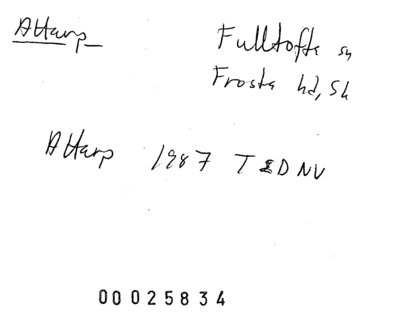 Attarp
Fulltofta sn
Frosta hd, Sk
Attarp 1987 T&DNV
00025834